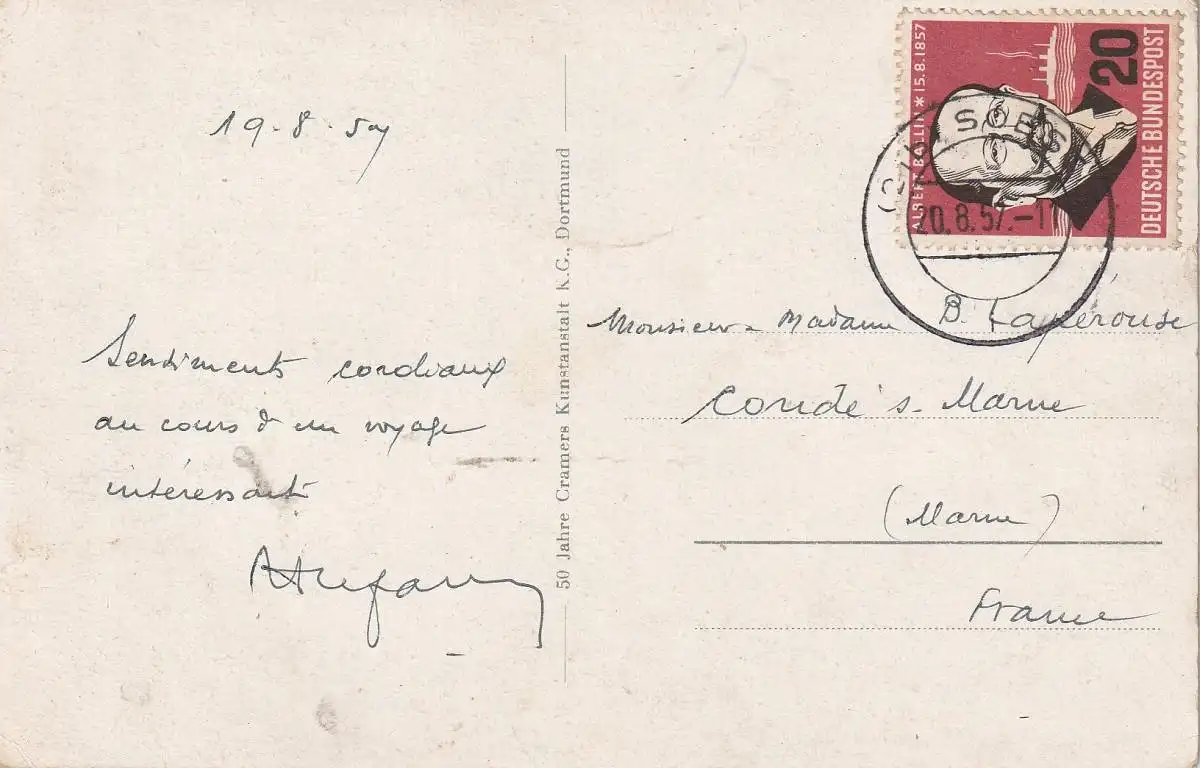 19.8.57
Sentiments cordiaux
au cours d'un voyage
intéressant
50 Jahre Cramers Kunstanstalt K.G., Dortmund
ALBERT BALLIN * 15.8.1857
20
DEUTSCHE BUNDESPOST
20.8.57.-1
Monsieur & Madame B. Lapérouse
Condé s. Marne
(Marne)
France